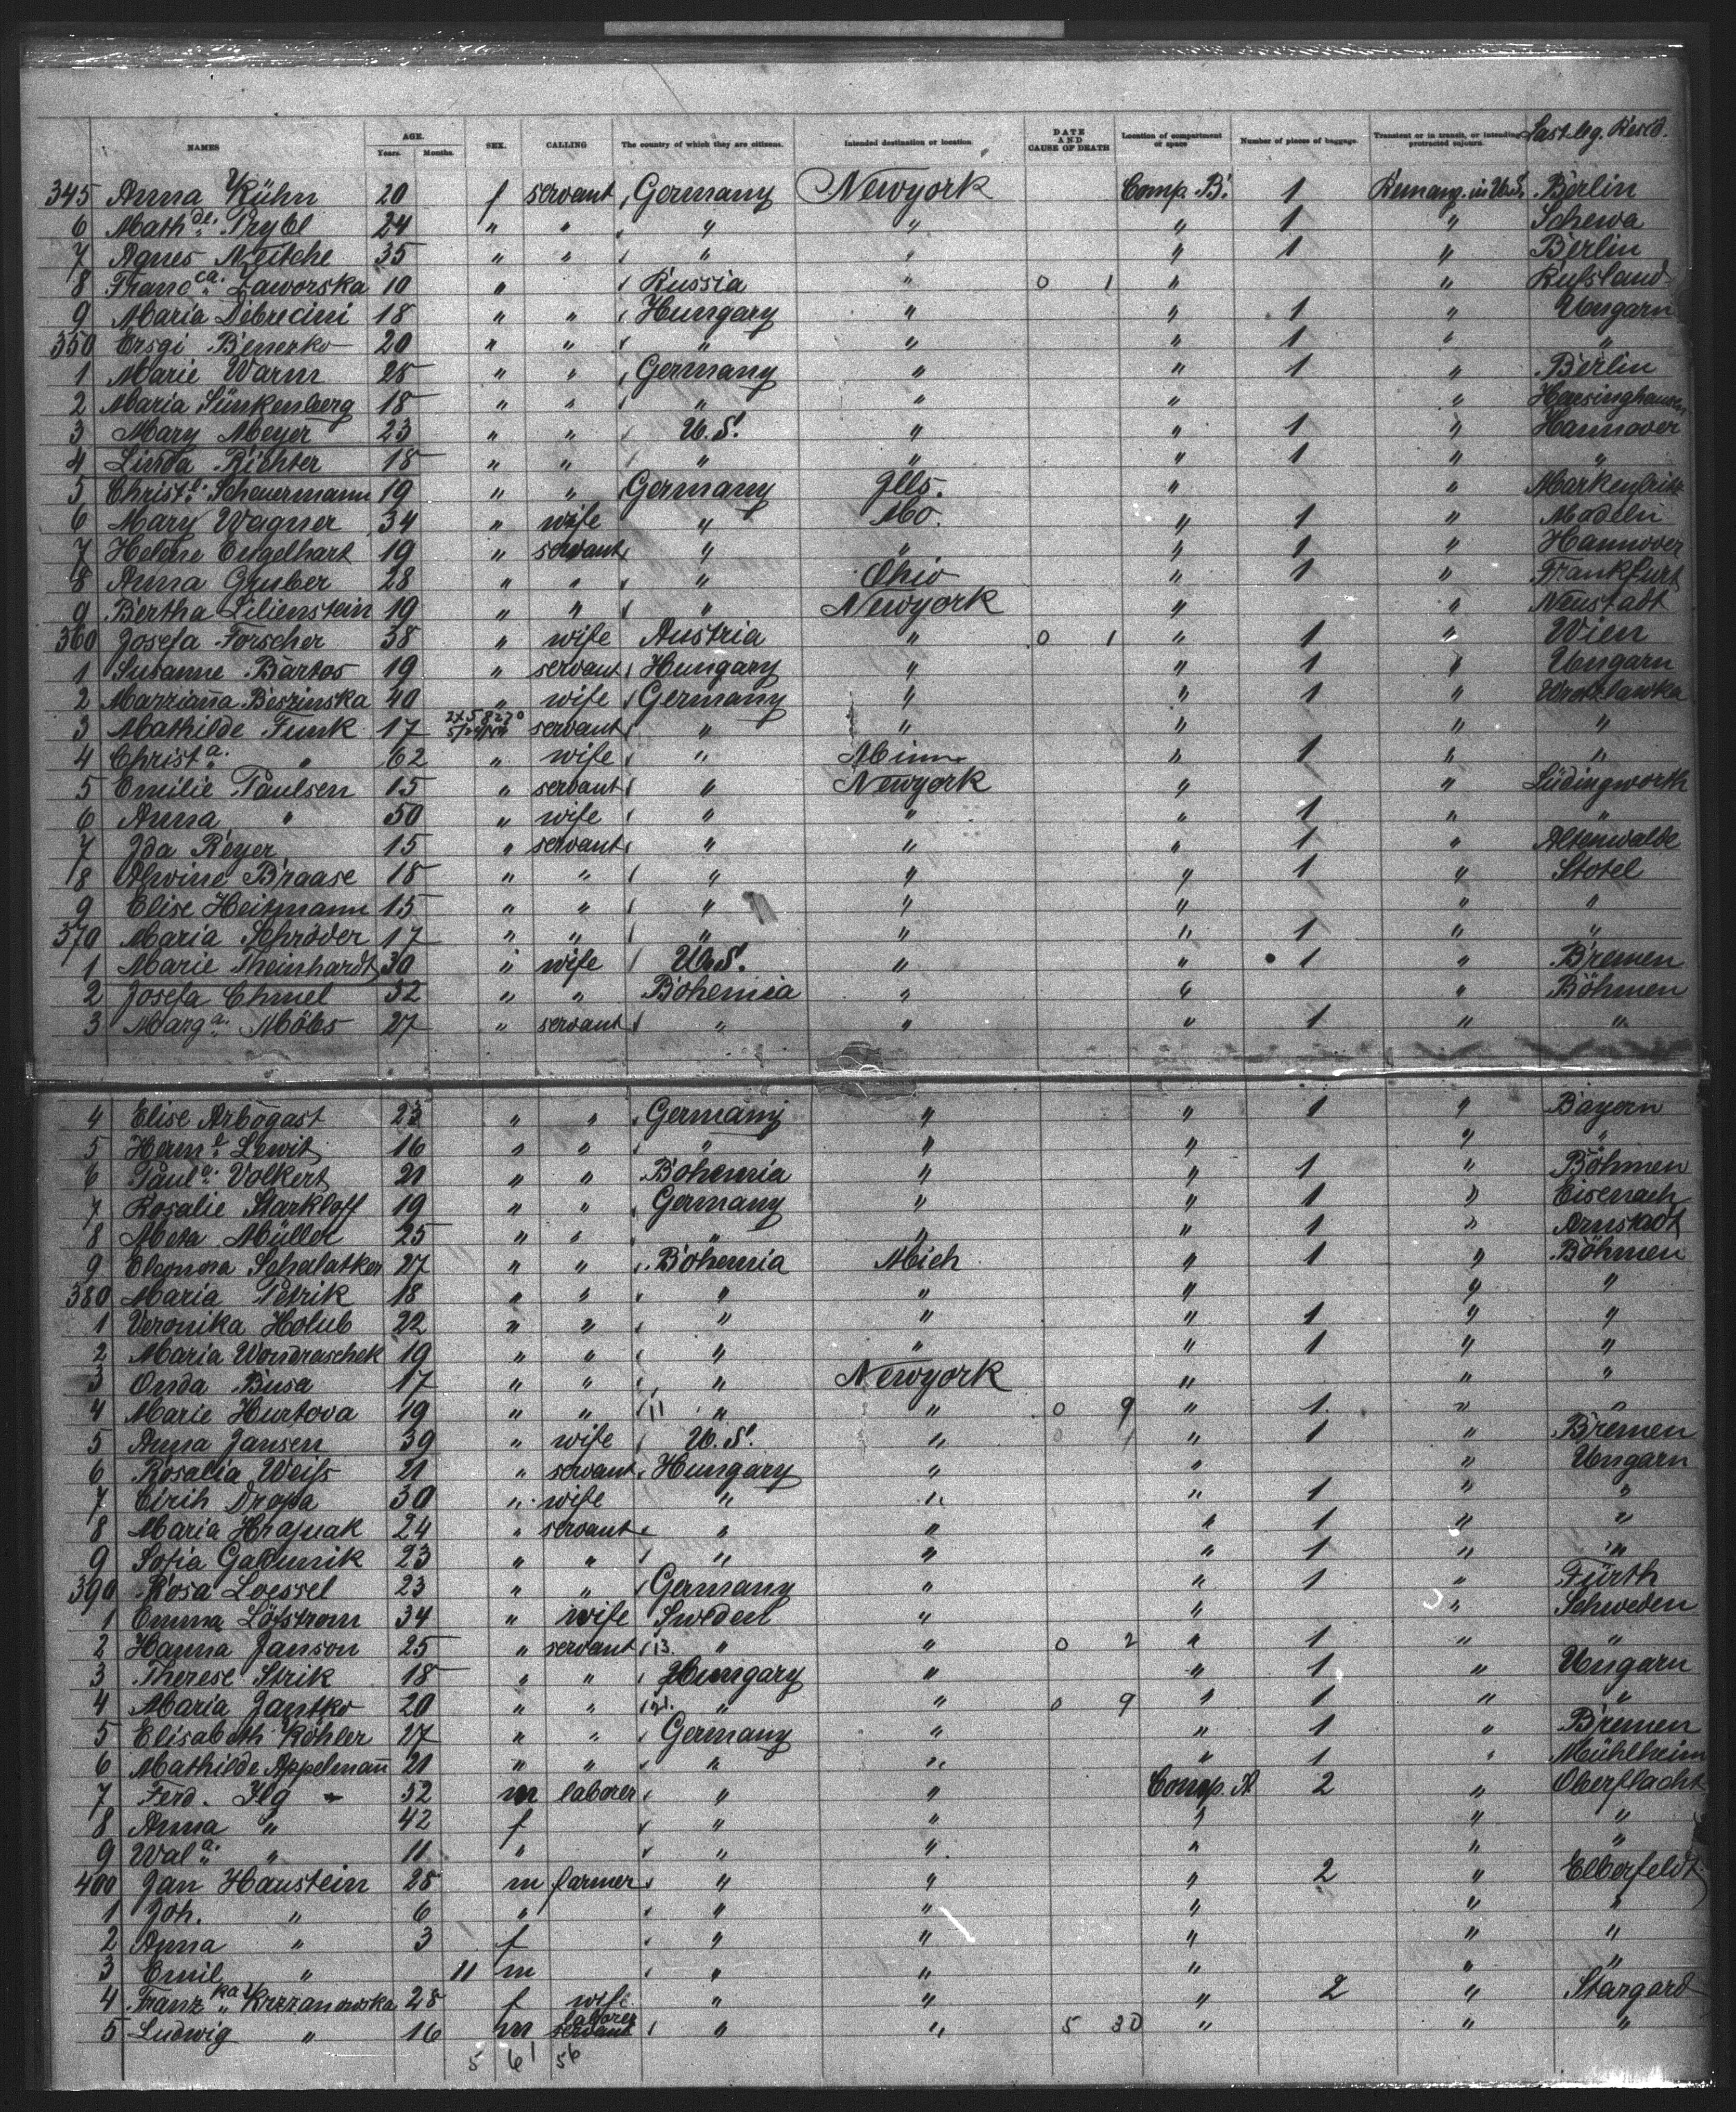 NAMES AGE. Years. Months. SEX. CALLING The country of which they are citizens. Intended destination or location. DATE AND CAUSE OF DEATH Location of compartment or space Number of pieces of baggage. Transient or in transit, or intending protracted sojourn. Last leg. Resid.
345 Anna Kühn 20 f servant Germany Newyork Comp. B. 1 Berlin
6 Math de. Prybl 24 " " " " " 1 " Schewa
7 Agnes Neitche 35 " " " " " 1 " Berlin
8 Franc ca. Zaworska 10 " Russia " 0 1 " " Rußland
9 Maria Debrecini 18 " " Hungary " " 1 " Ungarn
350 Ersgi Benezko 20 " " " " " 1 " "
1 Marie Warm 28 " " Germany " " 1 " Berlin
2 Maria Sünkenberg 18 " " " " " "
3 Mary Meyer 23 " " U.S. " " 1 " Hannover
4 Linda Richter 18 " " " " " 1 " "
5 Christ e. Scheuermann 19 " " Germany Ills. " "
6 Mary Wagner 34 " wife " Mo. " 1 " Modeln
7 Helene Engelhart 19 " servant " " " 1 " Hannover
8 Anna Gruber 28 " " " Ohio " 1 " Frankfurt
9 Bertha Lilienstein 19 " " " Newyork " " Neustadt
360 Josefa Forscher 38 " wife Austria " 0 1 " 1 " Wien
1 Susanne Bartos 19 " servant Hungary " " 1 " Ungarn
2 Marzianna Beszinska 40 " wife Germany " " 1 "
3 Mathilde Funk 17 servant " " " " "
4 Christ a. " 62 " wife " Minn. " 1 " "
5 Emilie Paulsen 15 " servant " Newyork " " Lüdingworth
6 Anna " 50 " wife " " " 1 " "
7 Ida Reyer 15 " servant " " " 1 " Altenwalde
8 Alwine Braase 18 " " " " " 1 " Stotel
9 Elise Heitmann 15 " " " " " " "
370 Maria Schröder 17 " " " " " 1 " "
1 Marie Theinhardt 30 " wife U.S. " " 1 " Bremen
2 Josefa Chmel 52 " " Bohemia " " " Böhmen
3 Marg a. Möbs 27 " servant " " " 1 " "
4 Elise Arbogast 23 " " Germany " " 1 " Bayern
5 Herm e Lewit 16 " " " " " " "
6 Paul a. Volkert 21 " " Bohemia " " 1 " Böhmen
7 Rosalie Starkloff 19 " " Germany " " 1 " Eisenach
8 Meta Müller 25 " " " " " 1 " Arnstadt
9 Eleonora Schalatker 27 " " Bohemia Mich " 1 " Böhmen
380 Maria Petrik 18 " " " " " " "
1 Veronika Holub 22 " " " " " 1 " "
2 Maria Wondraschek 19 " " " " " 1 " "
3 Onda Busa 17 " " " Newyork " " "
4 Marie Hurtova 19 " " 11 " " 0 9 " 1 " "
5 Anna Jansen 39 " wife U.S. " 0 1 " 1 " Bremen
6 Rosalia Weiß 21 " servant Hungary " " " Ungarn
7 Cirih Dropa 30 " wife " " " 1 " "
8 Maria Hrajnak 24 " servant " " " 1 " "
9 Sofia Galumik 23 " " " " " 1 " "
390 Rosa Loessel 23 " " Germany " " 1 " Fürth
1 Emma Löfstrom 34 " wife Sweden " " " Schweden
2 Hanna Janson 25 " servant 13 " " 0 2 " 1 " "
3 Therese Strik 18 " " Hungary " " 1 " Ungarn
4 Maria Jantko 20 " " " " 0 9 " 1 " "
5 Elisabeth Köhler 27 " " Germany " " 1 " Bremen
6 Mathilde Appelmañ 21 " " " " " 1 " Mühlheim
7 Ferd. Ilg 52 m laborer " " Comp. A 2 " Oberflacht
8 Anna " 42 f " " " " "
9 Wal a. " 11 " " " " " "
400 Jan Haustein 28 m farmer " " " 2 " Elberfeldt
1 Joh. " 6 " " " " " "
2 Anna " 3 f " " " " "
3 Emil " 11 m " " " " "
4 Franz ka Krzzanowska 28 f wife " " " 2 " Stargard
5 Ludwig " 16 m laborer servant " " 5 30 " " "
5 61 56